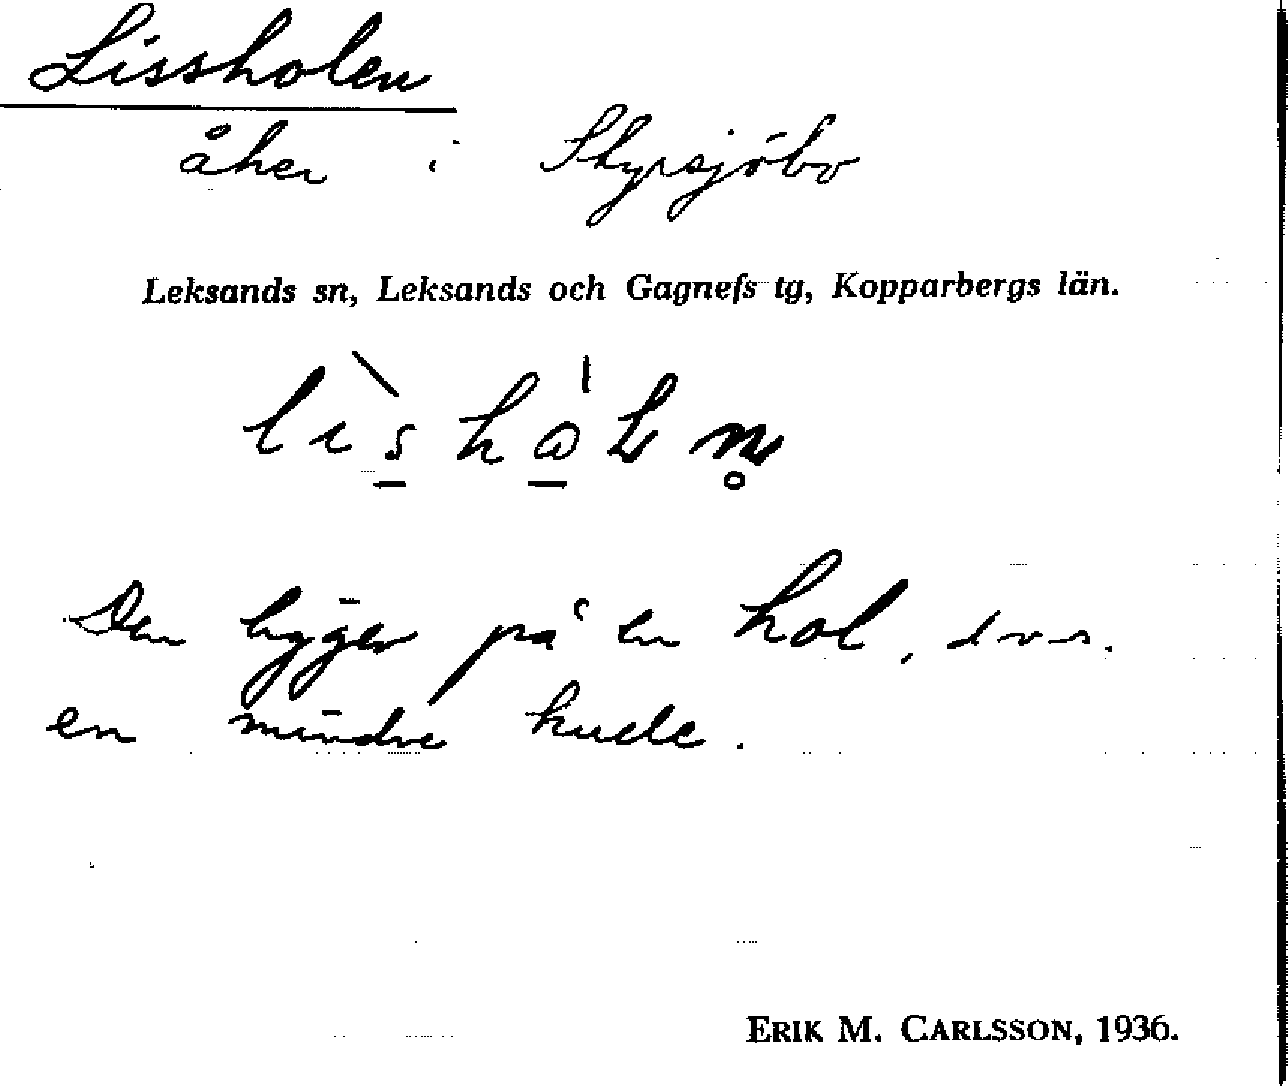 Lissholen
åker i Styrsjöbo
Leksands sn, Leksands och Gagnefs tg, Kopparbergs län.
Den ligger på en hol, dvs.
en mindre kulle.
ERIK M. CARLSSON, 1936.